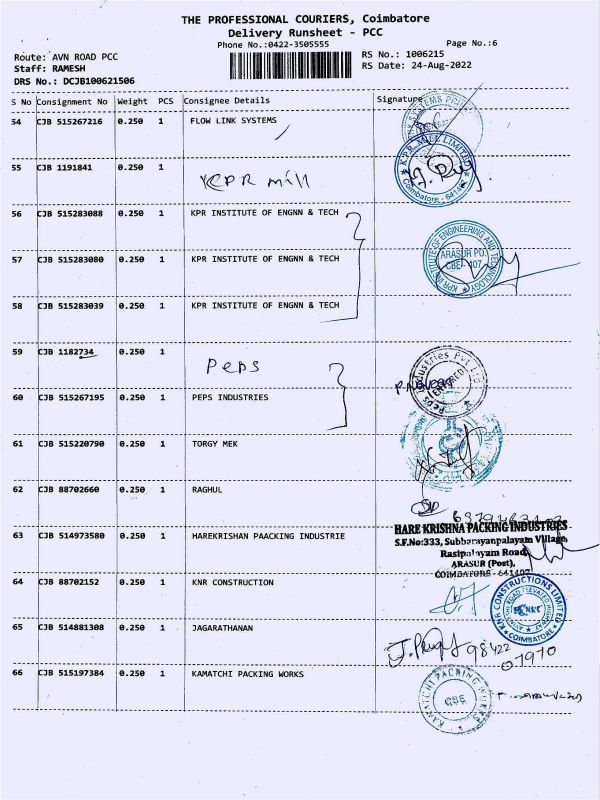 THE PROFESSIONAL COURIERS, Coimbatore
Delivery Runsheet - PCC
Phone No.:0422-3505555
Page No.:6
Route: AVN ROAD PCC
RS No.: 1006215
Staff: RAMESH
RS Date: 24-Aug-2022
DRS No.: DCJB100621506
S No Consignment No Weight PCS Consignee Details Signature
54 CJB 515267216 0.250 1 FLOW LINK SYSTEMS
55 CJB 1191841 0.250 1 KPR mill
KPR MILL LIMITED
Coimbatore - 641 407
56 CJB 515283088 0.250 1 KPR INSTITUTE OF ENGNN & TECH
57 CJB 515283080 0.250 1 KPR INSTITUTE OF ENGNN & TECH
KPR INSTITUTE OF ENGINEERING AND TECHNOLOGY
ARASUR PO.
CBE- 407
58 CJB 515283039 0.250 1 KPR INSTITUTE OF ENGNN & TECH
59 CJB 1182734 0.250 1 Peps
Peps Industries Pvt Ltd
60 CJB 515267195 0.250 1 PEPS INDUSTRIES
61 CJB 515220790 0.250 1 TORGY MEK
62 CJB 88702660 0.250 1 RAGHUL
63 CJB 514973580 0.250 1 HAREKRISHAN PAACKING INDUSTRIE
HARE KRISHNA PACKING INDUSTRIES
S.F.No:333, Subbarayanpalayam Village,
Rasipalayam Road,
ARASUR (Post),
COIMBATORE - 641407
64 CJB 88702152 0.250 1 KNR CONSTRUCTION
KNR CONSTRUCTIONS LIMITED
KNRC
COIMBATORE
65 CJB 514881308 0.250 1 JAGARATHANAN
98422
07970
66 CJB 515197384 0.250 1 KAMATCHI PACKING WORKS
KAMATCHI PACKING WORKS
CBE